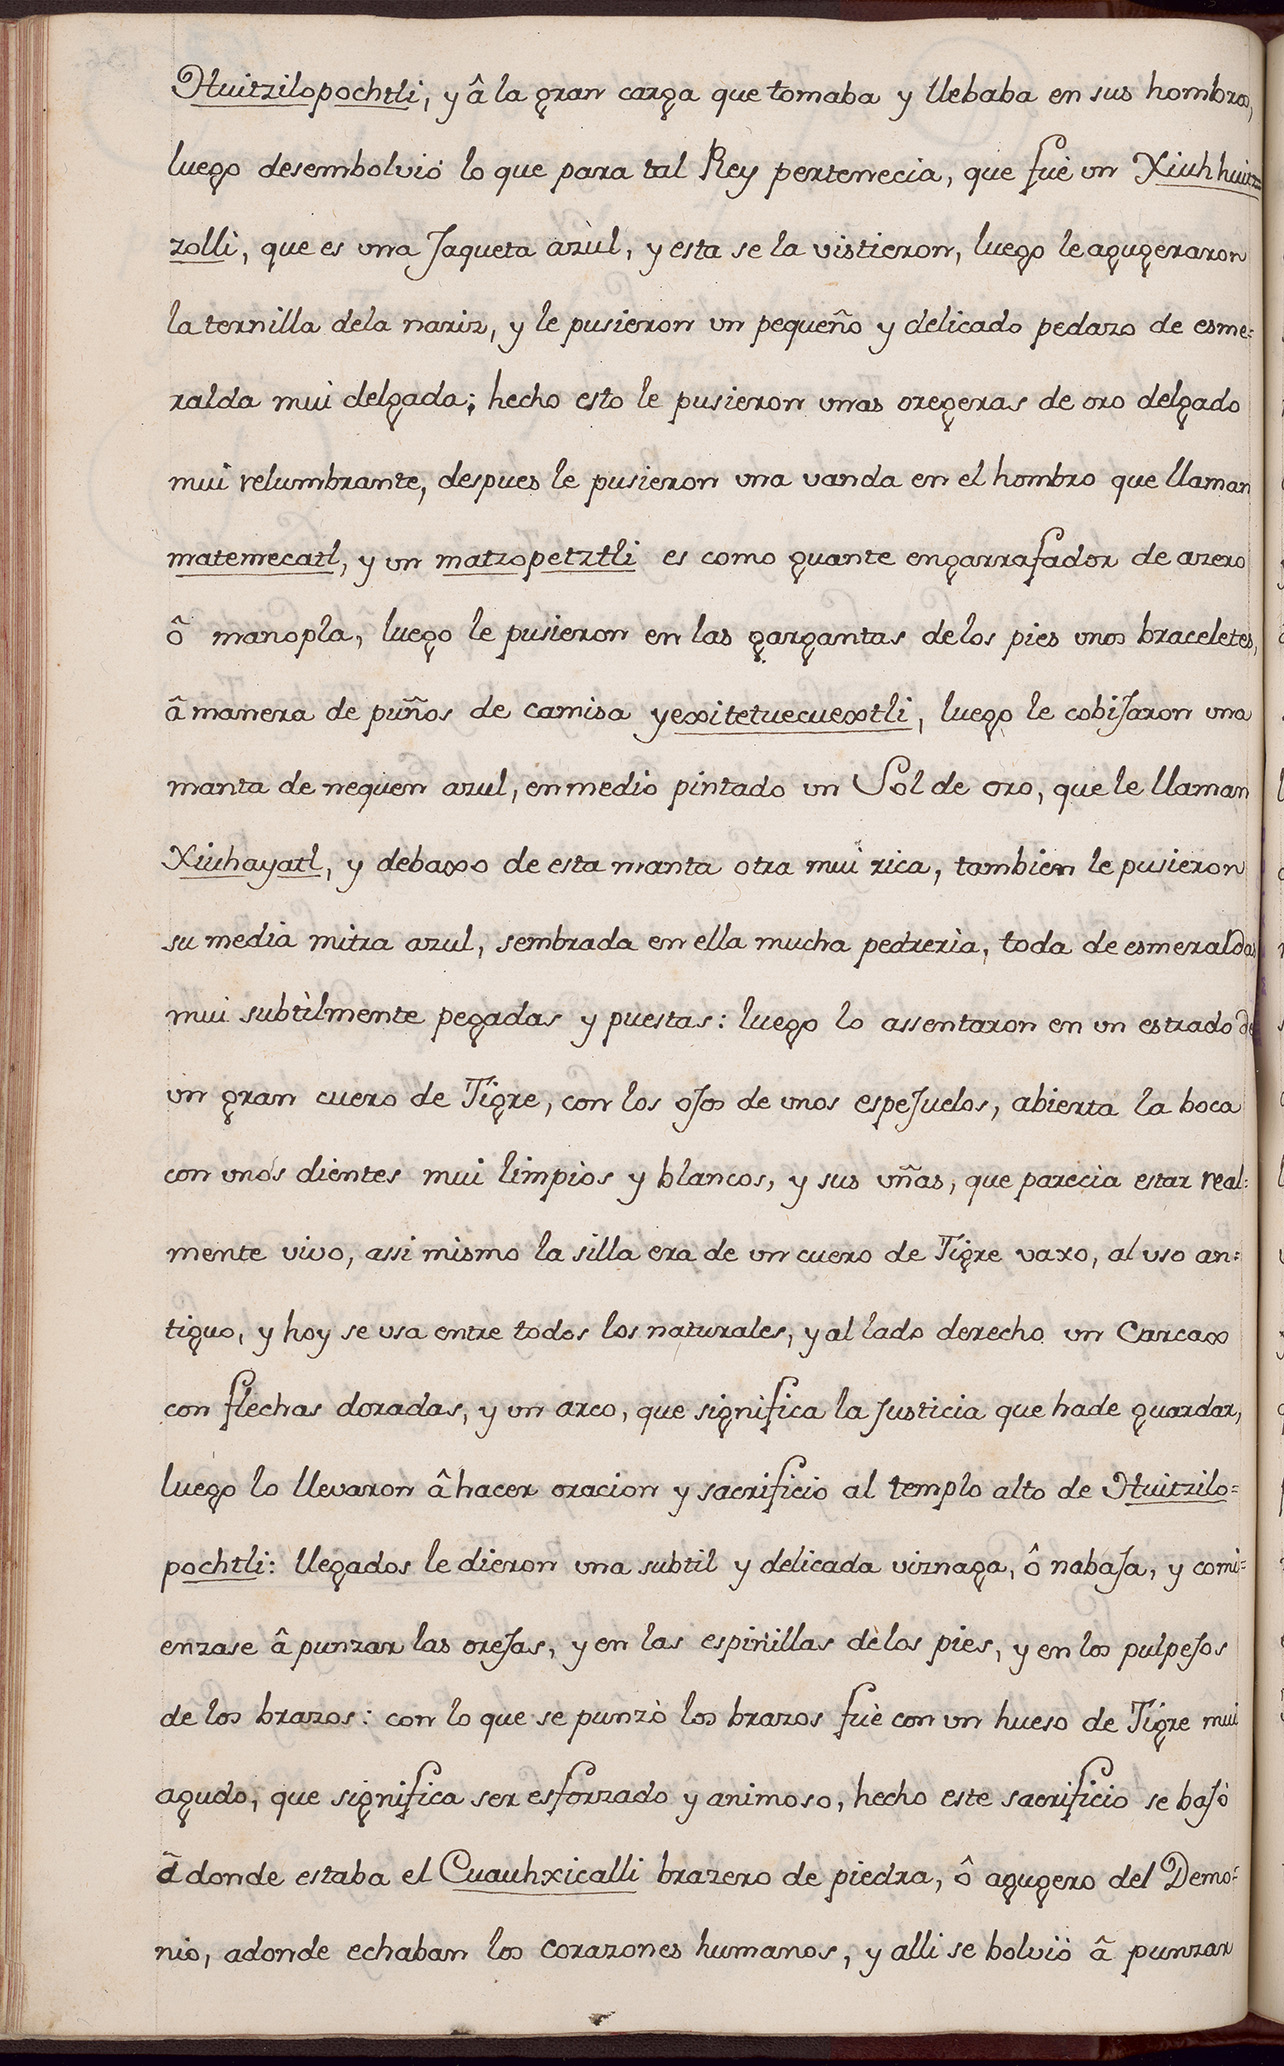 Huitzilopochtli, y â la gran carga que tomaba y llebaba en sus hombros,
luego desembolvió lo que para tal Rey pertenecia, que fué un Xiuhhuitz=
zolli, que es una Jaqueta azùl, y esta se la vistieron, luego le agugeraron
la ternilla dela nariz, y le pusieron un pequeño y delicado pedazo de esme=
ralda mui delgada; hecho esto le pusieron unas oregeras de oro delgado
mui relumbrante, despues le pusieron una vanda en el hombro que llaman
matemecatl, y un matzopetztli es como guante engarrafador de azero
ô manopla, luego le pusieron en las gargantas delos pies unos braceletes,
â manera de puños de camisa yexitetuecuextli, luego le cobiJaron una
manta de nequen azul, en medio pintado un Sol de oro, que le llaman
Xiuhayatl, y debaxo de esta manta otra mui rica, tambien le pusieron
su media mitra azul, sembrada en ella mucha pedreria, toda de esmeraldas
mui subtilmente pegadas y puestas: luego lo assentaron en un estrado de
un gran cuero de Tigre, con los oJos de unos espeJuelos, abierta la boca
con unos dientes mui limpios y blancos, y sus uñas, que parecia estar real=
mente vivo, assi mismo la silla era de un cuero de Tigre vaxo, al uso an=
tiguo, y hoy se usa entre todos los naturales, y al lado derecho un Carcax
con flechas doradas, y un arco, que significa la Justicia que hade guardar,
luego lo llevaron â hacer oracion y sacrificio al templo alto de Huitzilo=
pochtli: llegados le dieron una subtil y delicada viznaga, ô nabaJa, y comi=
enzase â punzar las oreJas, y en las espinillas delos pies, y en los pulpeJos
de los brazos: con lo que se punzò los brazos fuè con un hueso de Tigre mui
agudo, que significa ser esforzado y animoso, hecho este sacrificio se baJò
â donde estaba el Cuauhxicalli brazero de piedra, ô agugero del Demo=
nio, adonde echaban los corazones humanos, y alli se bolviò â punzar